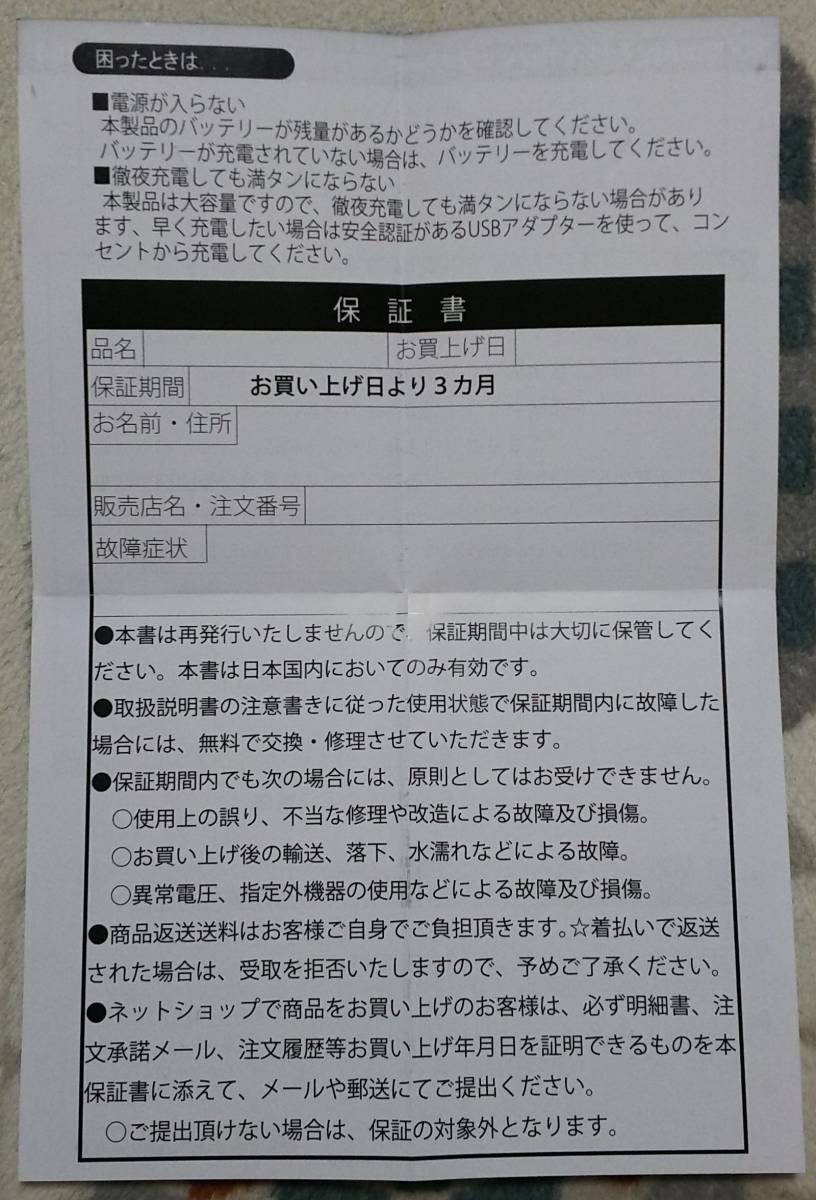 困ったときは...
■電源が入らない
本製品のバッテリーが残量があるかどうかを確認してください。
バッテリーが充電されていない場合は、バッテリーを充電してください。
■徹夜充電しても満タンにならない
本製品は大容量ですので、徹夜充電しても満タンにならない場合があり
ます、早く充電したい場合は安全認証があるUSBアダプターを使って、コン
セントから充電してください。
保 証 書
品名 お買上げ日
保証期間 お買い上げ日より3カ月
お名前・住所
販売店名・注文番号
故障症状
●本書は再発行いたしませんので、保証期間中は大切に保管してく
ださい。本書は日本国内においてのみ有効です。
●取扱説明書の注意書きに従った使用状態で保証期間内に故障した
場合には、無料で交換・修理させていただきます。
●保証期間内でも次の場合には、原則としてはお受けできません。
○使用上の誤り、不当な修理や改造による故障及び損傷。
○お買い上げ後の輸送、落下、水濡れなどによる故障。
○異常電圧、指定外機器の使用などによる故障及び損傷。
●商品返送送料はお客様ご自身でご負担頂きます。☆着払いで返送
された場合は、受取を拒否いたしますので、予めご了承ください。
●ネットショップで商品をお買い上げのお客様は、必ず明細書、注
文承諾メール、注文履歴等お買い上げ年月日を証明できるものを本
保証書に添えて、メールや郵送にてご提出ください。
○ご提出頂けない場合は、保証の対象外となります。